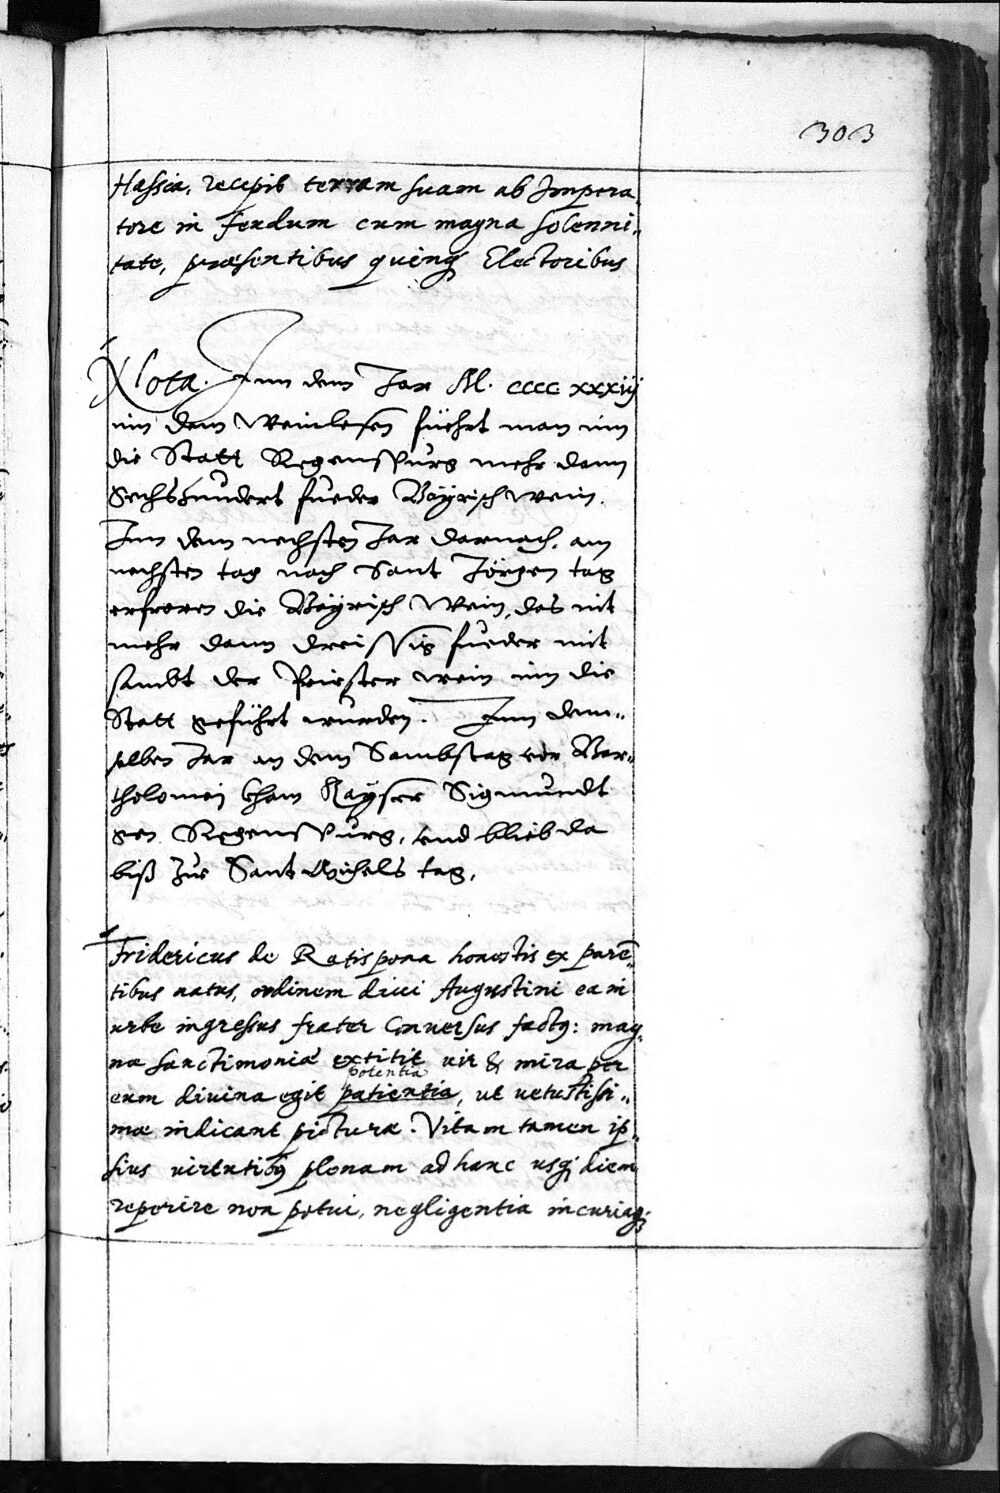 303
Hassia, recepit terram suam ab Impera,
tore in feudum cum magna solenni,
tate, præsentibus quinq; Electoribus
Nota. Inn dem Jar M. cccc xxxiij
inn dem Weinlesen füehrt man inn
die Statt Regenspurg mehr dann
Sechshundert fueder Bayrisch wein.
Inn dem nechsten Jar darnach, am
nechsten tag nach Sant Jörgen tag
erfroren die Bayrisch Wein, das nit
mehr dann dreissig fueder mit
sambt der Priester wein inn die
Statt geführt wurden. Inn dem,,
selben Jar an dem Sambstag vor Bar,,
tholomei kham Kayser Sigmundt
gen Regenspurg, und blieb da
biß zur Sant Michels tag.
Fridericus de Ratispona honestis ex parē,
tibus natus, ordinem divi Augustini ea in
urbe ingressus frater Conversus factq: mag,
næ sanctimoniæ extitit vir & mira per
potentia
eum divina egit patientia, ut vetustissi,,
mæ indicant picturæ. Vitam tamen ip,
sius virtutibq plenam ad hanc usq; diem
reperire non potui, negligentia incuriaq;